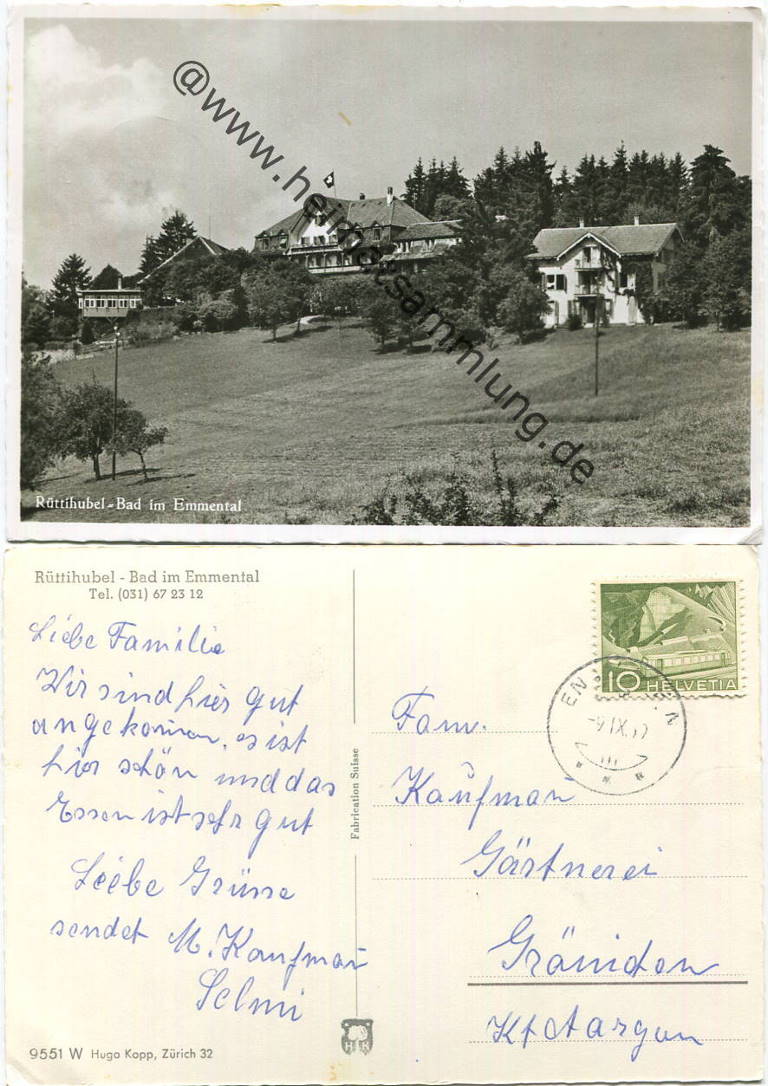 @www.heimatsammlung.de
Rüttihubel-Bad im Emmental
Rüttihubel - Bad im Emmental
Tel. (031) 67 23 12
Liebe Familie
Wir sind hier gut
angekommen, es ist
hier schön und das
Essen ist sehr gut
Liebe Grüsse
sendet M. Kaufman
Selmi
9551 W Hugo Kopp, Zürich 32
Fabrication Suisse
HK
10 HELVETIA
-9.IX.
Fam.
Kaufman
Gärtnerei
Gränichen
Kt Aargau